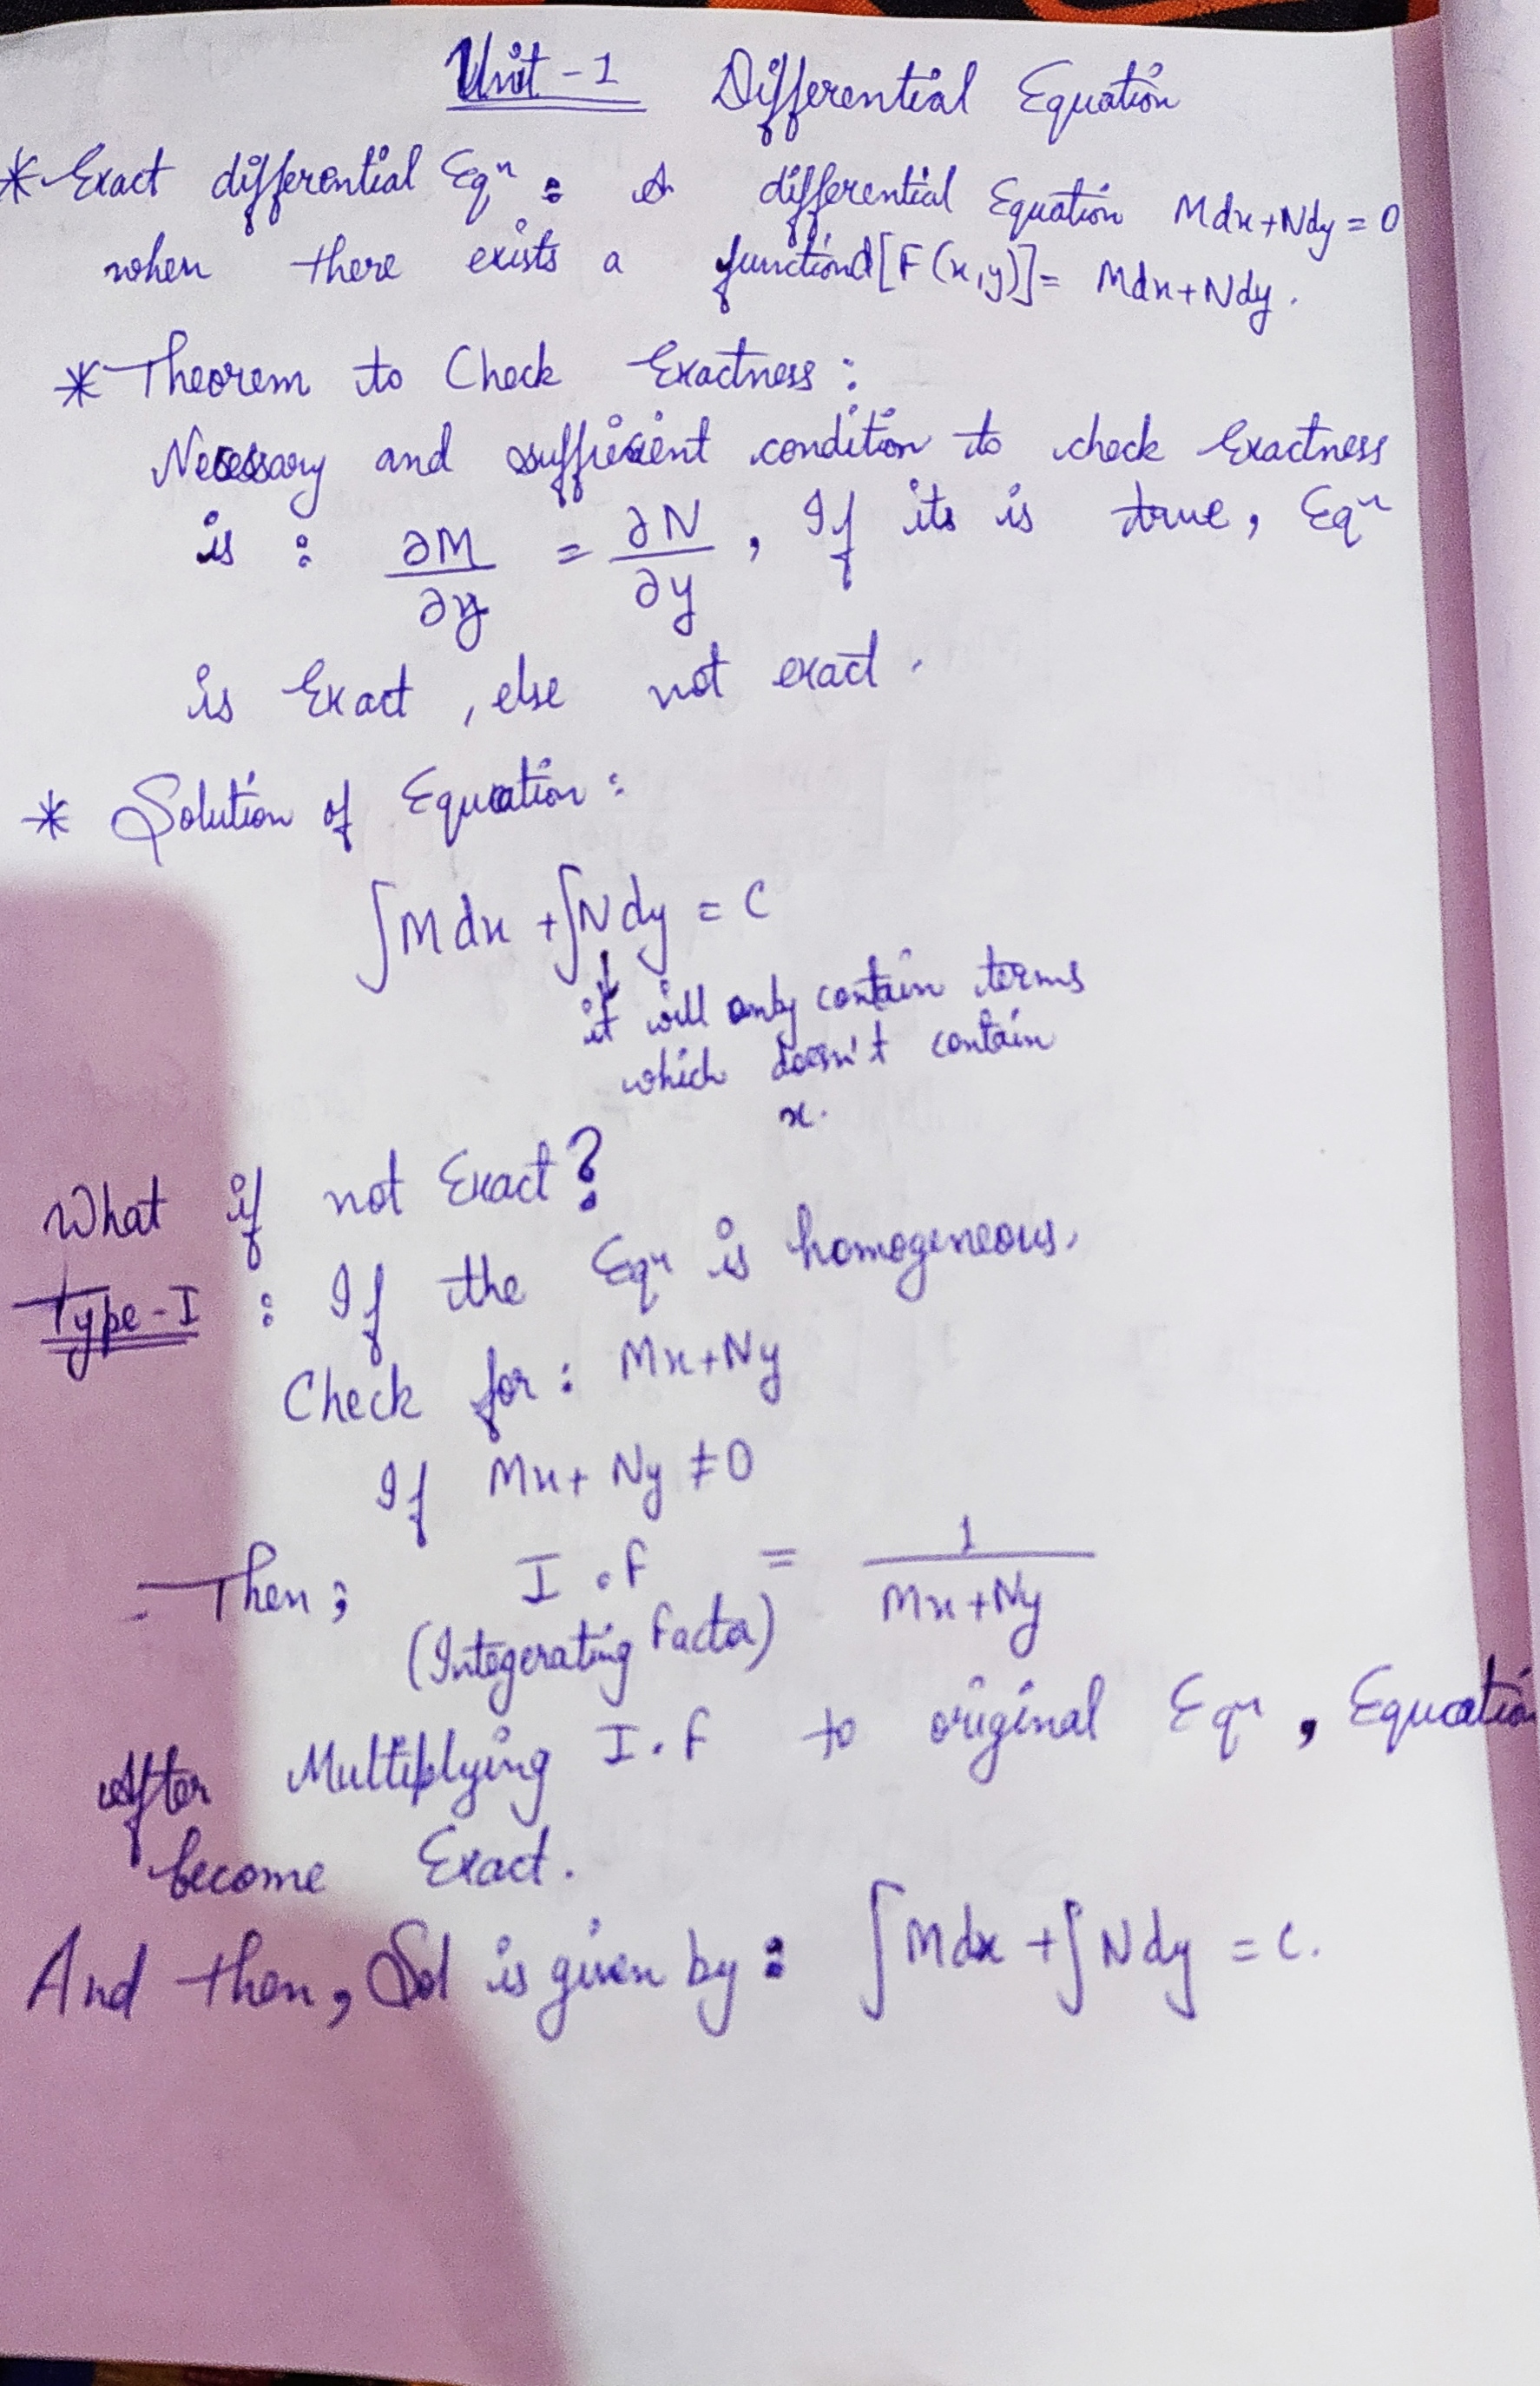 Unit - 1 Differential Equation
* Exact differential Eqⁿ : A differential Equation Mdx+Ndy=0
when there exists a function d[F(x,y)]= Mdx+Ndy.
* Theorem to Check Exactness :
Necessary and sufficient condition to check Exactness
is : ∂M/∂y = ∂N/∂y , If its is true, Eqⁿ
is Exact , else not exact .
* Solution of Equation :
∫Mdx +∫Ndy = C
↓
it will only contain terms
which doesn't contain
x.
What if not Exact?
Type-I : If the Eqⁿ is homogeneous.
Check for : Mx+Ny
If Mx+ Ny ≠0
Then ; I.F = 1/(Mx+Ny)
(Integerating Factor)
After Multiplying I.F to original Eqⁿ , Equation
become Exact.
And then, Sol is given by : ∫Mdx +∫Ndy = C.